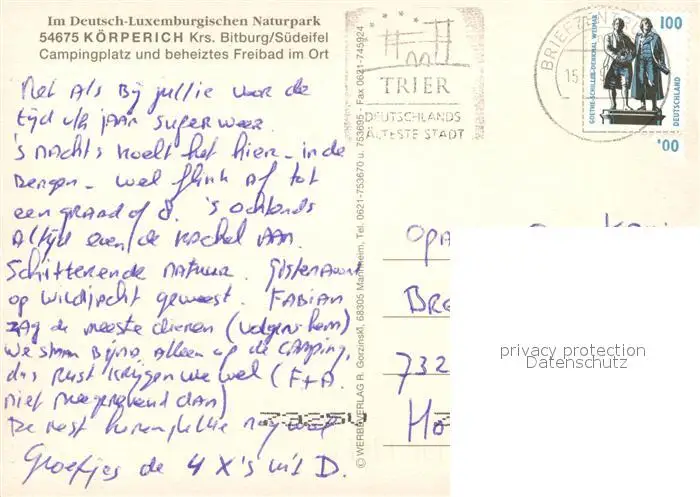 Im Deutsch-Luxemburgischen Naturpark
54675 KÖRPERICH Krs. Bitburg/Südeifel
Campingplatz und beheiztes Freibad im Ort
Net als bij jullie voor de
tijd v/h jaar super weer.
's nachts koelt het hier - in de
bergen - wel flink af tot
een graad of 8. 's Ochtends
altijd even de kachel aan.
Schitterende natuur. Gisteravond
op wildjacht geweest. Fabian
zag de meeste dieren (volgens hem)
We staan bijna alleen op de camping,
dus rust krijgen we wel (F+A
niet meegerekend dan)
De rest horen jullie nog wel
Groetjes de 4 X's uit D.
© WERBEVERLAG R. Gorzinski, 68305 Mannheim, Tel. 0621-753670 u. 753695 - Fax 0621-745924
TRIER
DEUTSCHLANDS
ÄLTESTE STADT
BRIEFZENTRUM
15.
100
GOETHE-SCHILLER-DENKMAL WEIMAR
DEUTSCHLAND
00
Opa
Bre
732
Ho
73250
privacy protection
Datenschutz